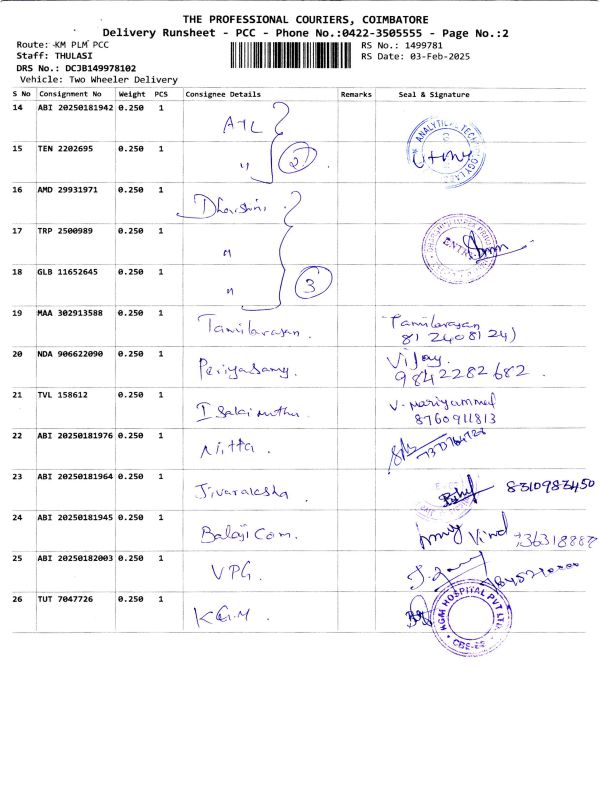 THE PROFESSIONAL COURIERS, COIMBATORE
Delivery Runsheet - PCC - Phone No.:0422-3505555 - Page No.:2
Route: KM PLM PCC
RS No.: 1499781
Staff: THULASI
RS Date: 03-Feb-2025
DRS No.: DCJB149978102
Vehicle: Two Wheeler Delivery
S No Consignment No Weight PCS Consignee Details Remarks Seal & Signature
14 ABI 20250181942 0.250 1 ATL
15 TEN 2202695 0.250 1 " 2
16 AMD 29931971 0.250 1 Dharshini
17 TRP 2500989 0.250 1 " ENTRY
18 GLB 11652645 0.250 1 " 3
19 MAA 302913588 0.250 1 Tamilarasan. Tamilarasan
20 NDA 906622090 0.250 1 Periyasamy. Vijay.
9842282682.
21 TVL 158612 0.250 1 V. Mariyammal
8760911813
22 ABI 20250181976 0.250 1 Nitta.
23 ABI 20250181964 0.250 1 Jivaraksha 8310983450
24 ABI 20250181945 0.250 1 Balaji Com.
25 ABI 20250182003 0.250 1 VPG.
26 TUT 7047726 0.250 1 KGM. KGM HOSPITAL PVT LTD